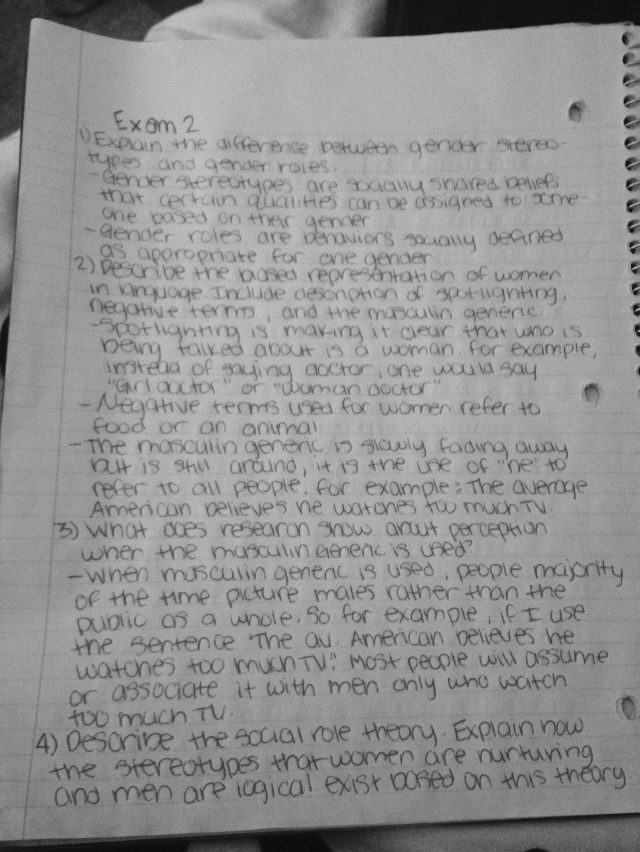 Exam 2
1) Explain the difference between gender stereo-
types and gender roles.
-Gender stereotypes are socially shared beliefs
that certain qualities can be assigned to some-
one based on their gender
-Gender roles are behaviors socially defined
as appropriate for one gender
2) Describe the biased representation of women
in language. Include description of spotlighting,
negative terms, and the masculin generic.
-Spotlighting is making it clear that who is
being talked about is a woman. For example,
instead of saying doctor, one would say
"Girl doctor" or "woman doctor"
- Negative terms used for women refer to
food or an animal
-The masculin generic is slowly fading away
but is still around, it is the use of "he" to
refer to all people. For example: The average
American believes he watches too much TV.
3) What does research show about perception
when the masculin generic is used?
-When masculin generic is used, people majority
of the time picture males rather than the
public as a whole. So for example, if I use
the sentence "The av. American believes he
watches too much TV." Most people will assume
or associate it with men only who watch
too much TV.
4) Describe the social role theory. Explain how
the stereotypes that women are nurturing
and men are logical exist based on this theory.